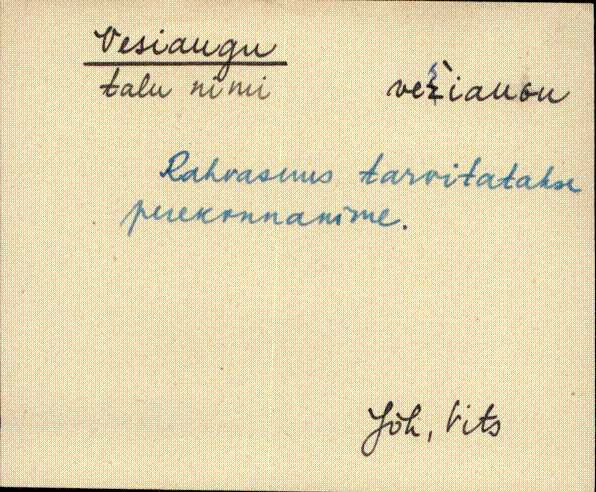 Vesiaugu
talu nimi vežìauGu
Rahvasuus tarvitatakse
perekonnanime.
Jõh, Vits